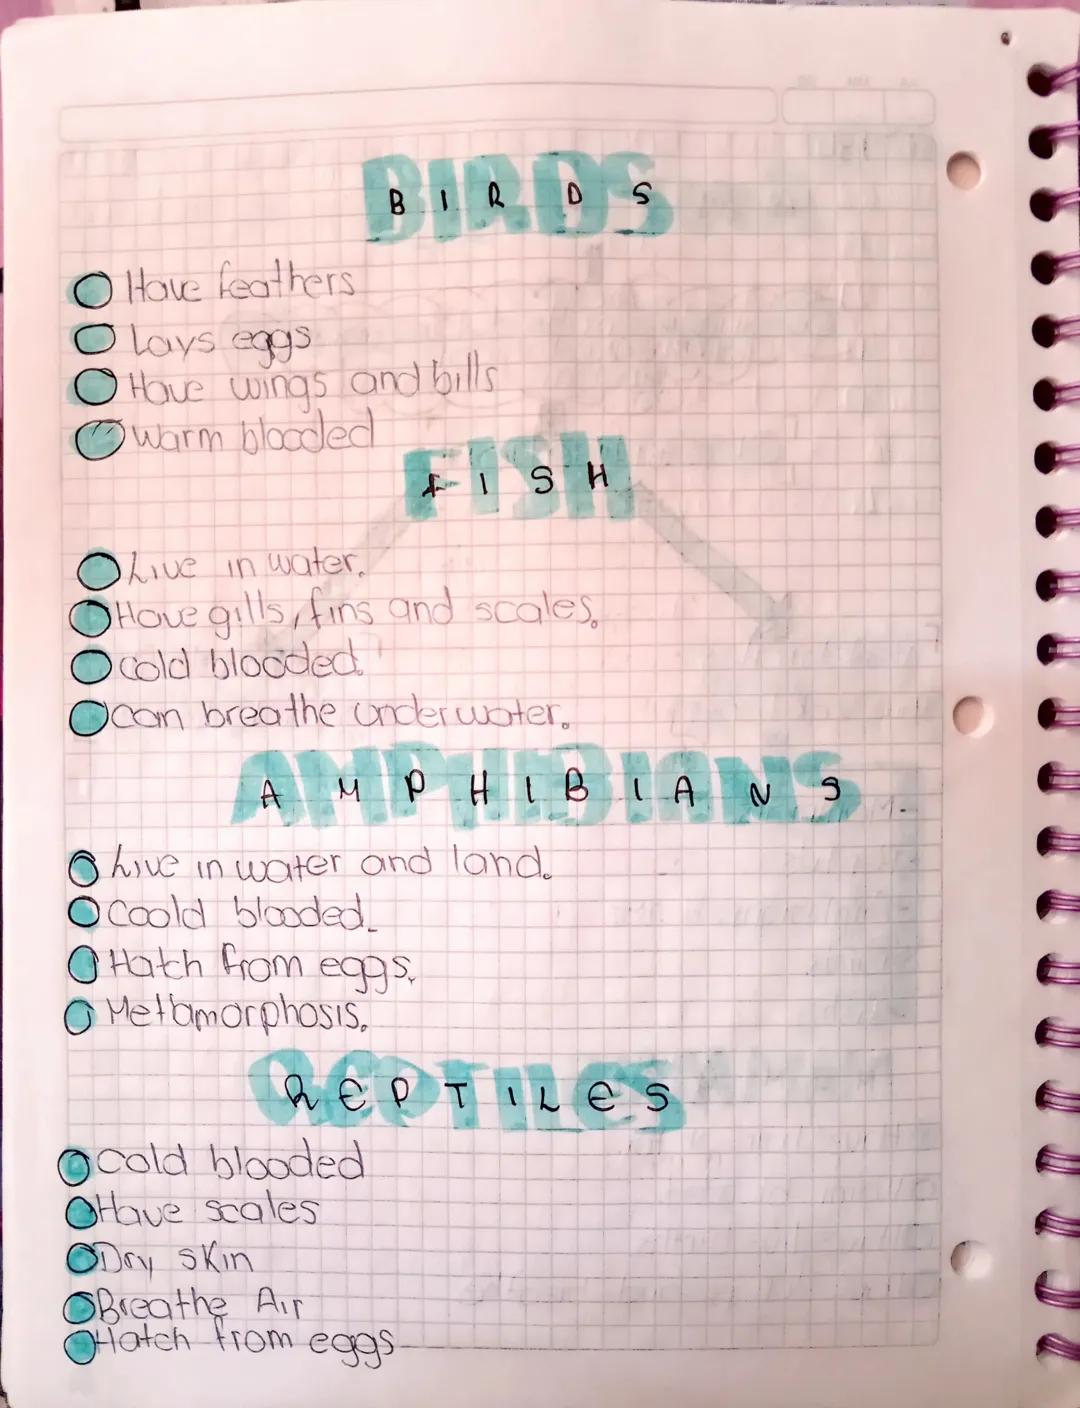 BIRDS
Have feathers
Lays eggs
Have wings and bills
Warm blooded
FISH
Live in water.
Have gills, fins and scales.
Cold blooded.
Can breathe underwater.
AMPHIBIANS
Live in water and land.
Coold blooded.
Hatch from eggs.
Metamorphosis.
REPTILES
Cold blooded
Have scales
Dry skin
Breathe Air
Hatch from eggs